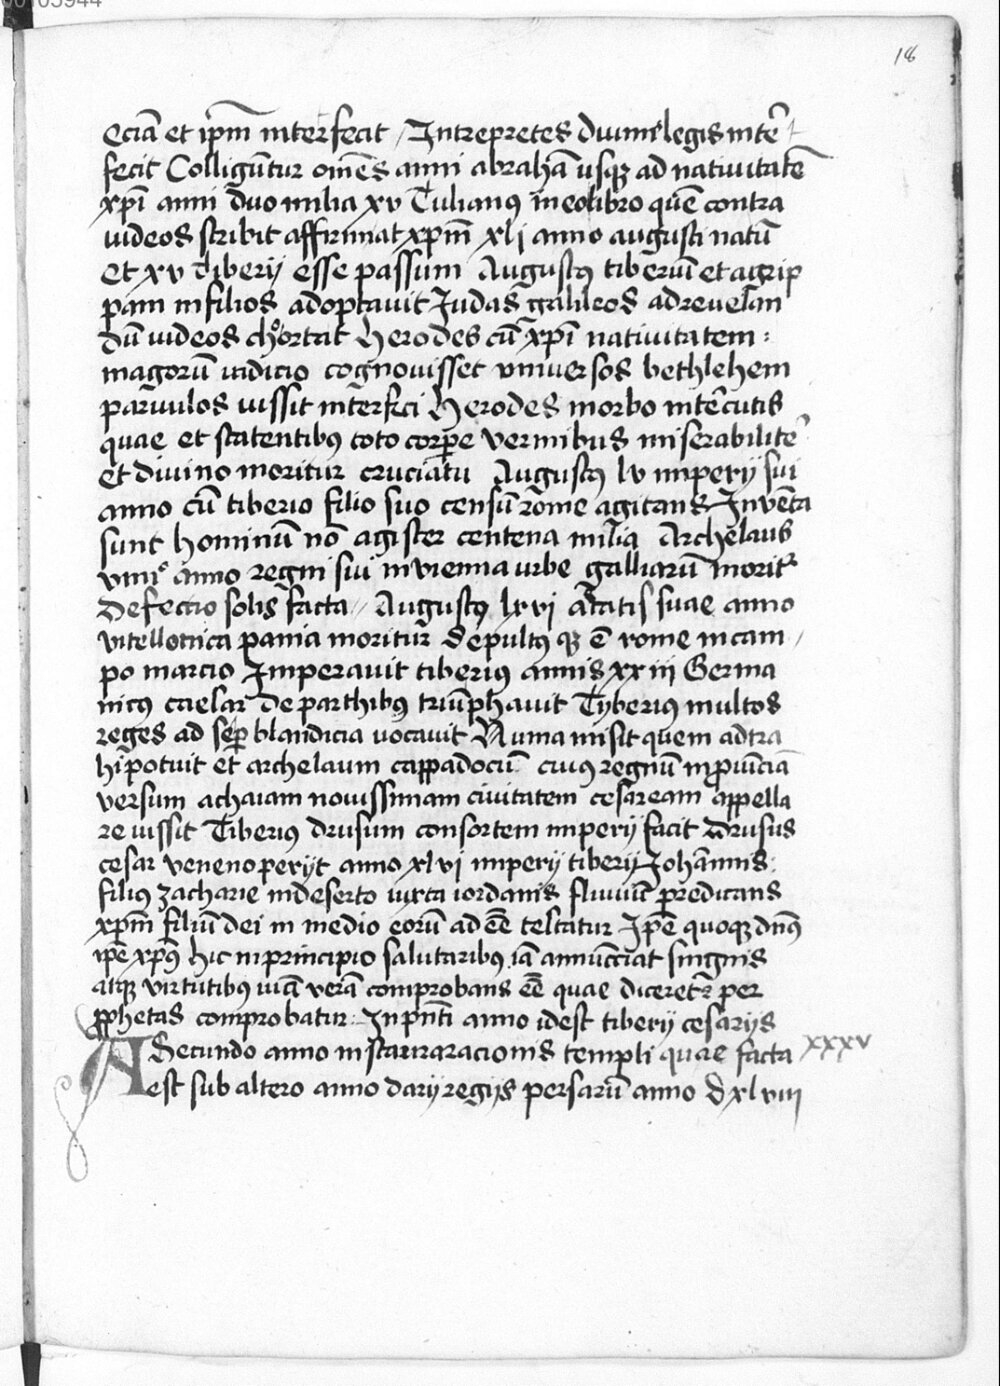 00105944
18
eciā et ip̄m interfecit / Intrepretes diuine legis inte᷒
fecit Colligūtur om̄es anni abrahā usqꝫ ad natiuitatē
xp̄i anni duo milia xv Iulianꝰ in eo libro quē contra
iudeos scribit affirmat xp̄m xlj anno augusti natū
et xv tiberij esse passum Augustꝰ tiberiū et agrip
pam in filios adoptauit Iudas galileos ad revelan
dū iudeos chortat Herodes cū xp̄i natiuitatem :
magorū indicio cognouisset vniuersos bethlehem
paruulos iussit interfici Herodes morbo inte᷒cutis
quae et scatentibꝰ toto corꝑe vermibus miserabilite᷒
et diuino moritur cruciatu Augustꝰ lv imperij sui
anno cū tiberio filio suo censū rome agitans Inuēta
sunt hominū no agister centena milia Archelaus
viiiiº anno regni sui in vienna urbe galliarū morit᷒
defectio solis facta // Augustꝰ lxxvi ætatis suae anno
vitellotnica pania moritur Sepultꝰ qꝫ ē rome in cam /
po marcio Imperauit tiberiꝰ annis xxiii Germa
nicꝰ caesar de parthibꝰ triūphauit Tyberiꝰ multos
reges ad se ꝑ blandicia uocauit Numa misit quem ad tra
hi potuit et archelaum cappadocū cuiꝰ regnū in ꝓuīciā
versum achaiam nouissimam ciuitatem cesaream appella
re iussit Tiberiꝰ drusum consortem imperij facit Drusus
cesar veneno perijt anno xlvi imperij tiberij Iohannis :
filiꝰ zacharie in deserto iuxta iordanis fluuiū p̄redicans
xp̄m filiū dei in medio eorū ad eē testatur Ip̄e quoqꝫ dn̄s
ip̄e xp̄s hic in principio salutaribꝰ iā annūcciat singnis
atqꝫ virtutibꝰ uiā verā comprobans eē quae diceret᷒ per
ꝓphetas comprobatur : In p̄nti anno idest tiberij cesarijs
A Secundo anno instauraracionis templi quae facta xxxv
est sub altero anno darij regijs persarū anno dxlviii